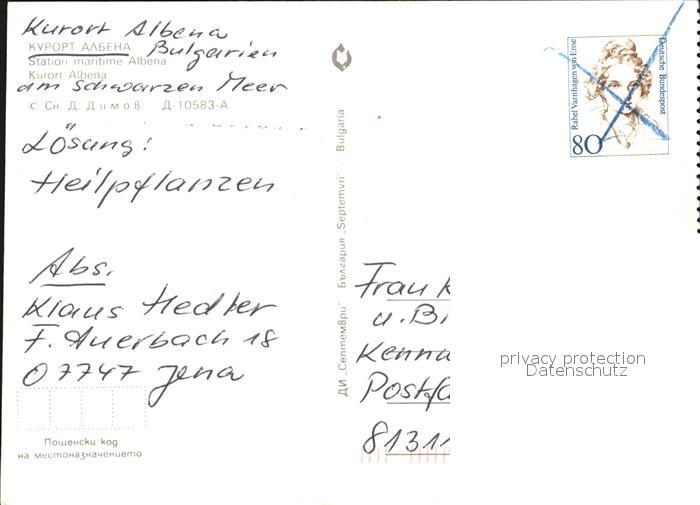 Kurort Albena
КУРОРТ АЛБЕНА Bulgarien
Station maritime Albena
Kurort Albena
am schwarzen Meer
© Сн. Д. Димов Д-10583-А
Lösung:
Heilpflanzen
Abs.
Klaus Hedler
F. Auerbach 18
07747 Jena
Пощенски код
на местоназначението
ДИ „Септември" България „Septemvri" Bulgaria
Rahel Varnhagen von Ense
Deutsche Bundespost
80
Frau
u. Bi
Kennu
Postfa
81311
privacy protection
Datenschutz